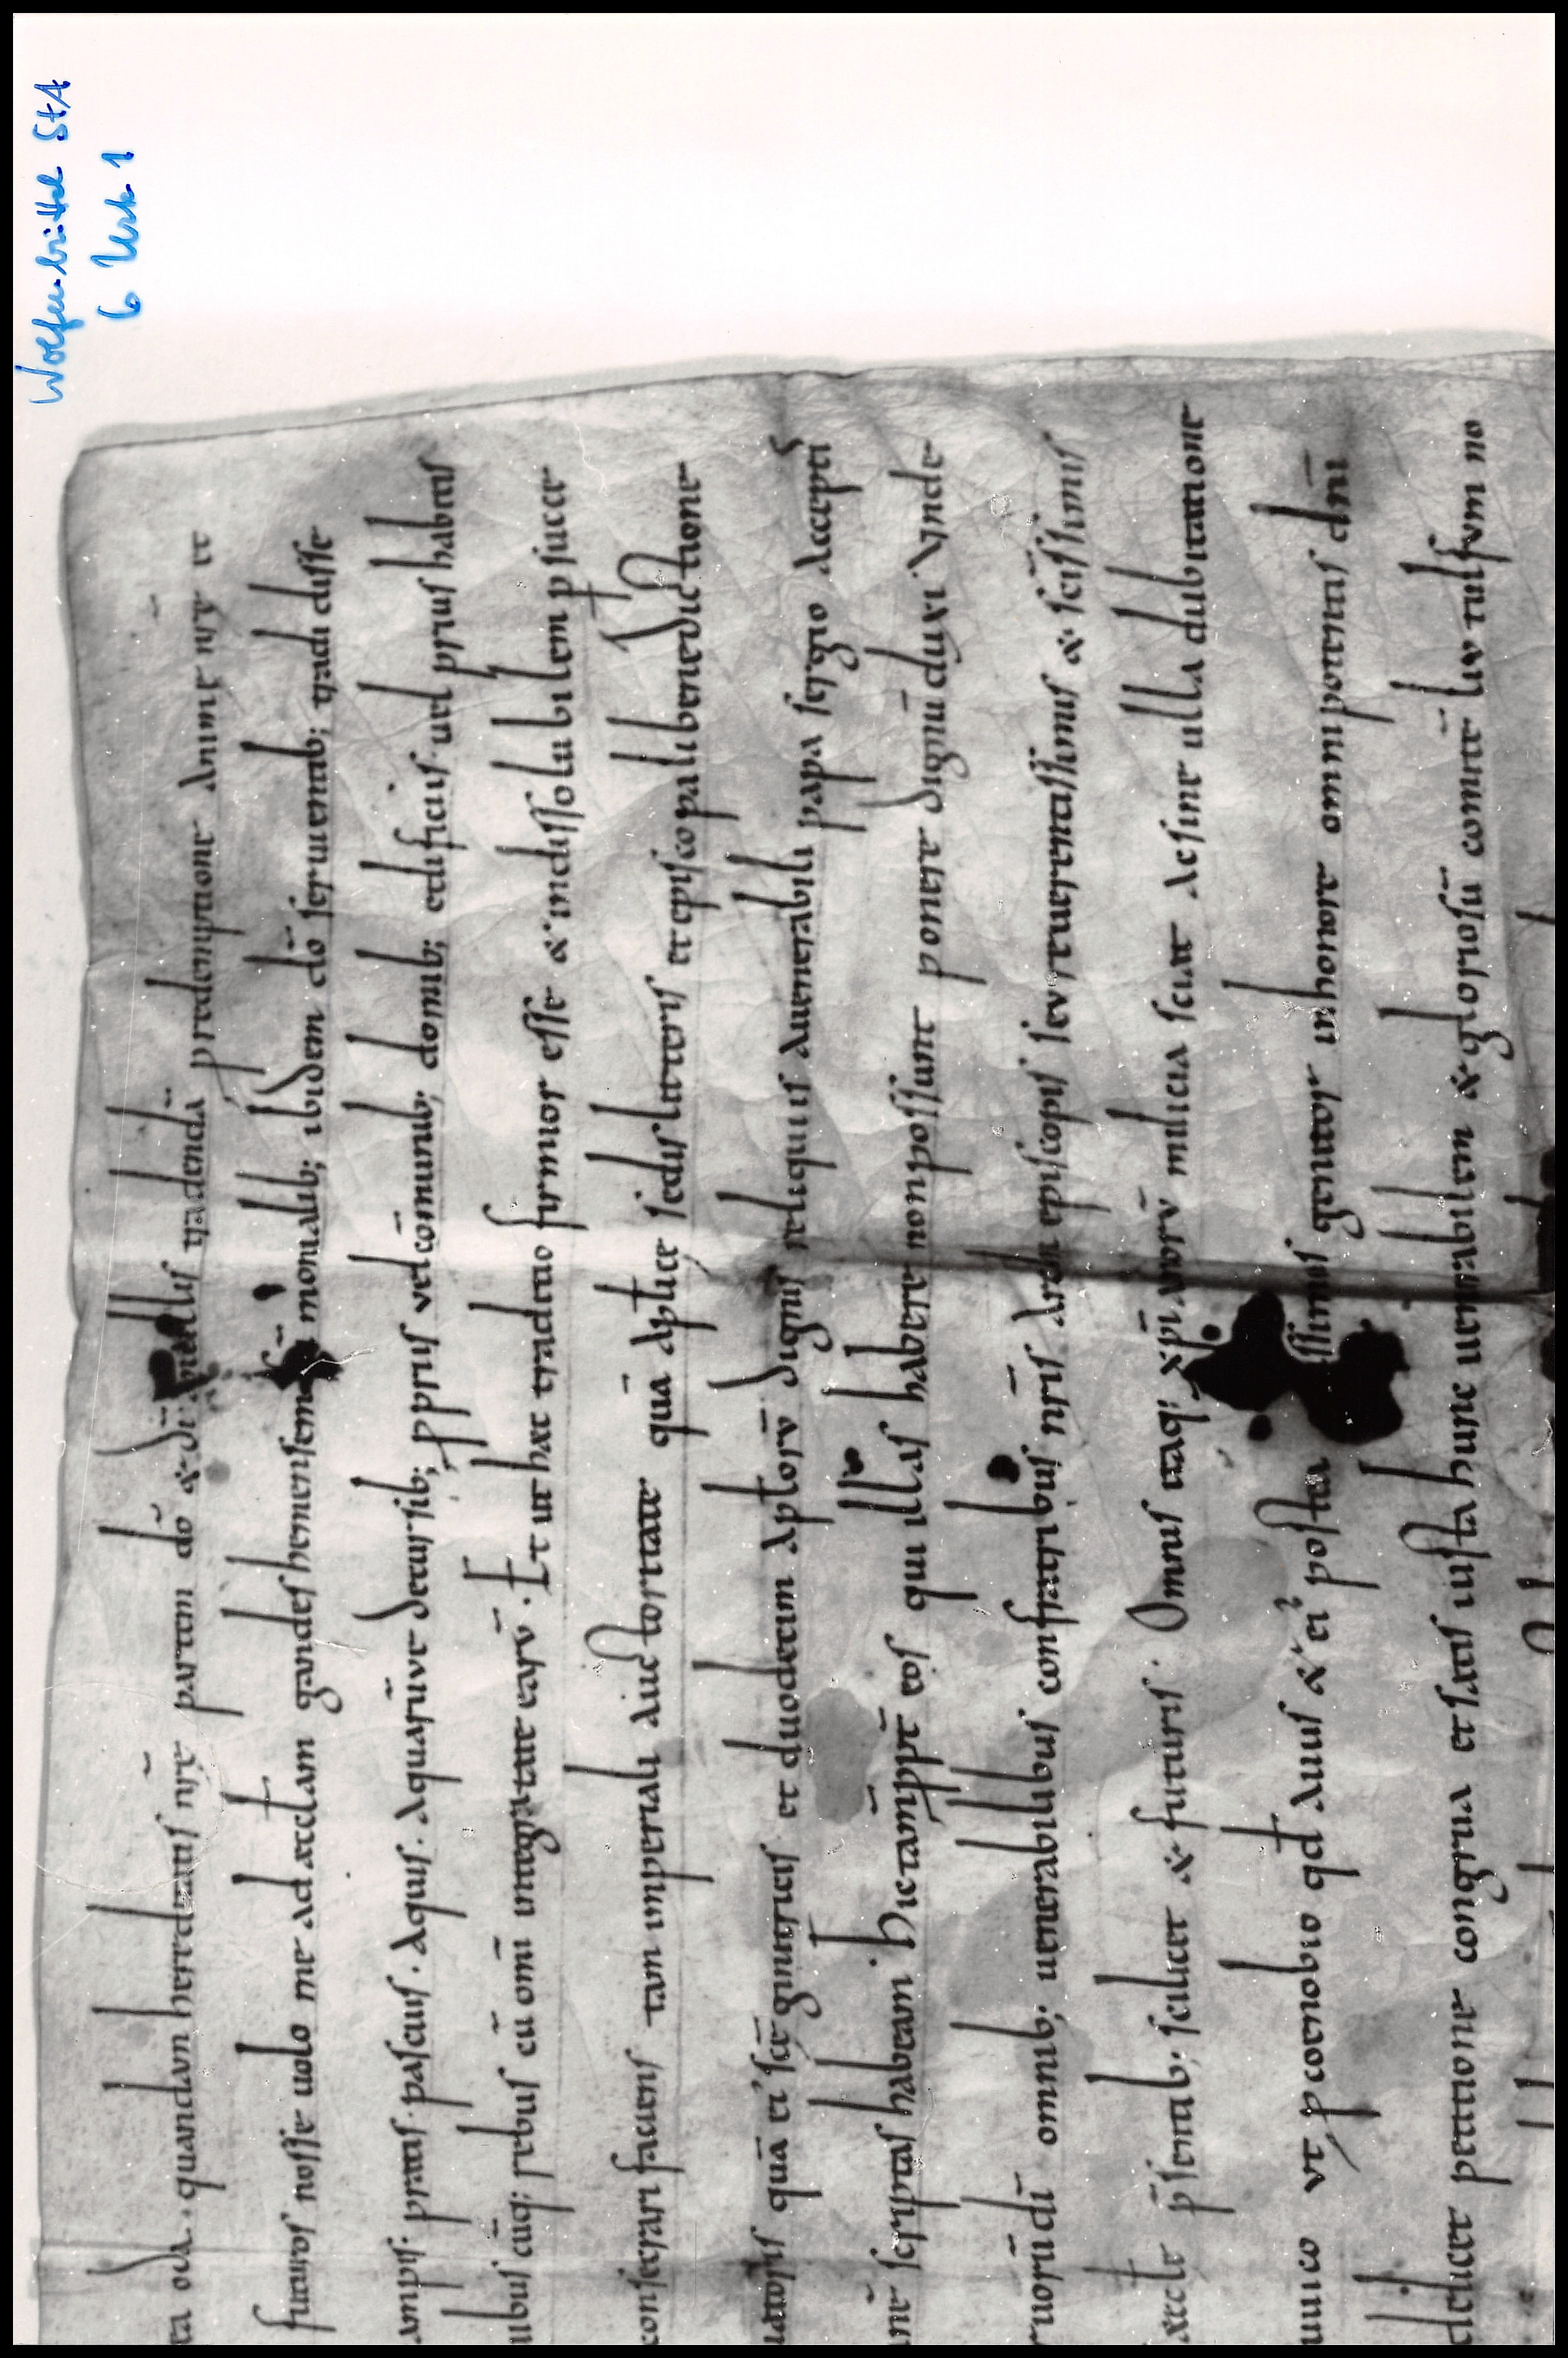 Wolfenbüttel StA
6 Urk 1
ta oda. quandam hereditatis nrę̄ partem dō & di tradendā p̄redemptione animę nrę̄ et
futuros nosse uolo me ad aecclam gandes hemensem monialib; ibidem dō seruientib; tradidisse
ampis. pratis. pascuis. aquis. aquarūve decursib; ppriis vel cōmunib; domib; edificiis. uel prius habitis
ilibus cūq; rebus cū omī integritate earū. Et ut haec traditio firmior esse & indissolubilem p succe
consecrari faciens tam imperiali auctoritate quā aplicę sedis litteris et episcopali benedictione
quā ei scē genitricis et duodecim aptorū dignis reliquiis auenerabili papa sergio accepti
inē scriptas habeam. Hic tam ppt̄ eos qui illas habere non possunt ponere dignū duxi Unde
uorū dī omnib; uenerabilibus confratribus nr̄is archiepiscopis seu reuerentissimis & sc̄issimis
p̄sentib; scilicet & futuris. Omnis itaq; xp̄ianorū milicia sciat ac sine ulla dubitatione
unico ut p coenobio qd auus & ei² genitor in honore omnipotentis dnī
cilicet petitione congrua et satis iusta hunc uenerabilem & gloriosū comitē